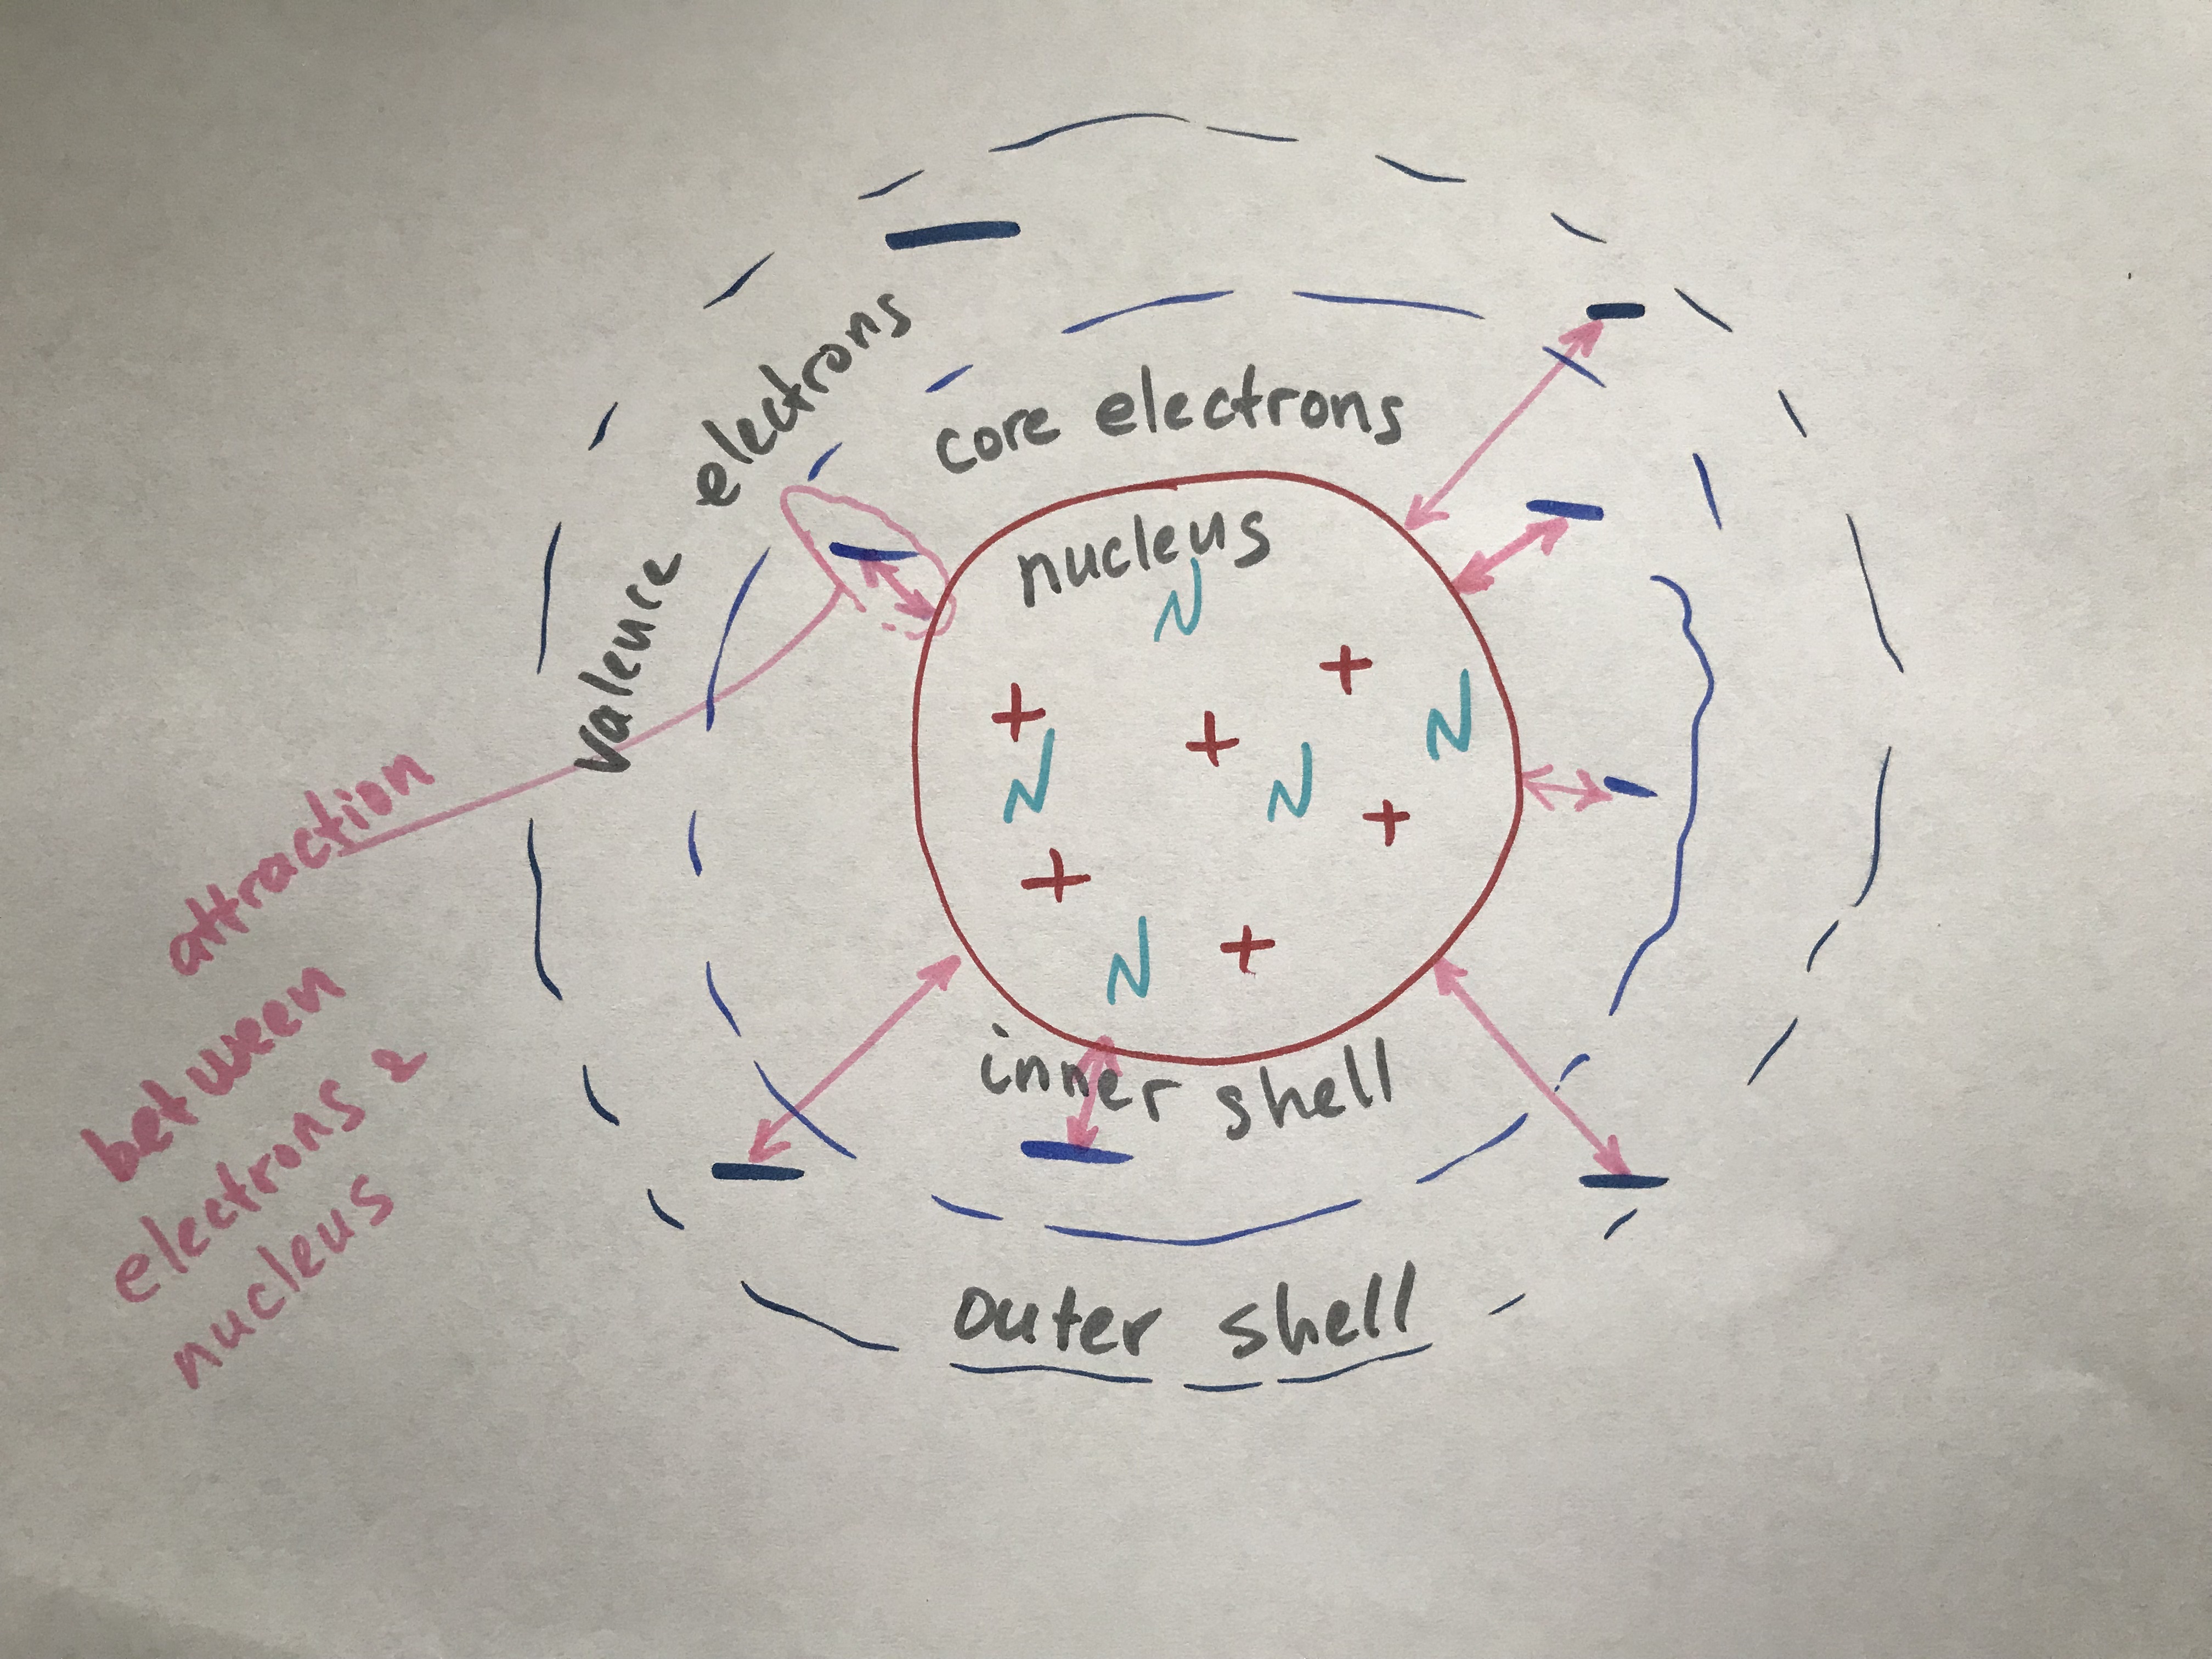 valence electrons
core electrons
nucleus
N
+
+
+
N
N
N
+
+
N
+
inner shell
outer shell
attraction
between
electrons &
nucleus